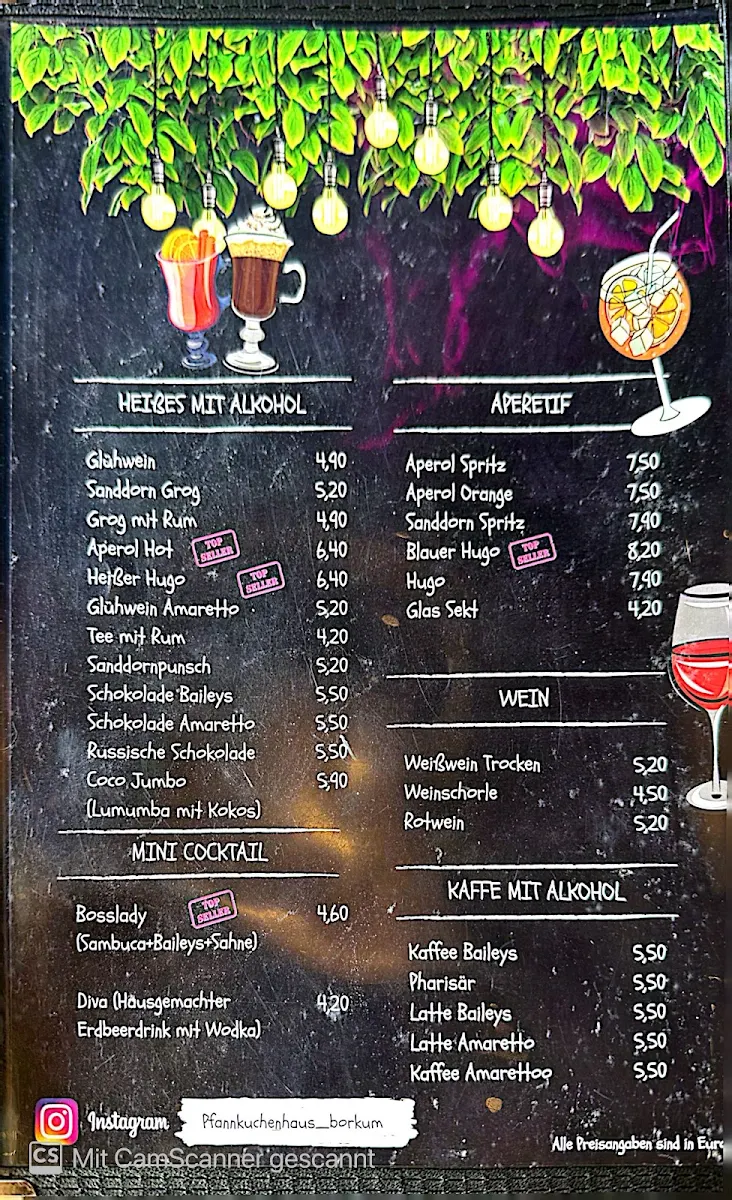 HEIßES MIT ALKOHOL
Glühwein 4,90
Sanddorn Grog 5,20
Grog mit Rum 4,90
Aperol Hot TOP SELLER 6,40
Heißer Hugo TOP SELLER 6,40
Glühwein Amaretto 5,20
Tee mit Rum 4,20
Sanddornpunsch 5,20
Schokolade Baileys 5,50
Schokolade Amaretto 5,50
Russische Schokolade 5,50
Coco Jumbo 5,90
(Lumumba mit Kokos)
MINI COCKTAIL
Bosslady TOP SELLER 4,60
(Sambuca+Baileys+Sahne)
Diva (Hausgemachter 4,20
Erdbeerdrink mit Wodka)
APERETIF
Aperol Spritz 7,50
Aperol Orange 7,50
Sanddorn Spritz 7,90
Blauer Hugo TOP SELLER 8,20
Hugo 7,90
Glas Sekt 4,20
WEIN
Weißwein Trocken 5,20
Weinschorle 4,50
Rotwein 5,20
KAFFE MIT ALKOHOL
Kaffee Baileys 5,50
Pharisär 5,50
Latte Baileys 5,50
Latte Amaretto 5,50
Kaffee Amarettoo 5,50
Instagram Pfannkuchenhaus_borkum
Alle Preisangaben sind in Euro
CS Mit CamScanner gescannt